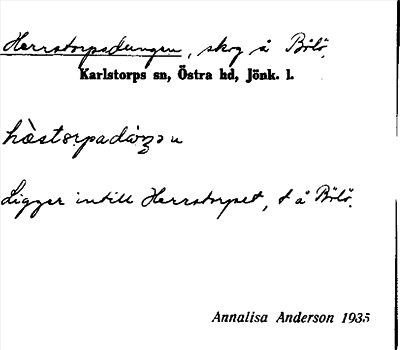 Herrstorpadungen, skog å Bölö.
Karlstorps sn, Östra hd, Jönk. l.
hàstorpadàŋən
Ligger intill Herrstorpet, t å Bölö.
Annalisa Anderson 1935